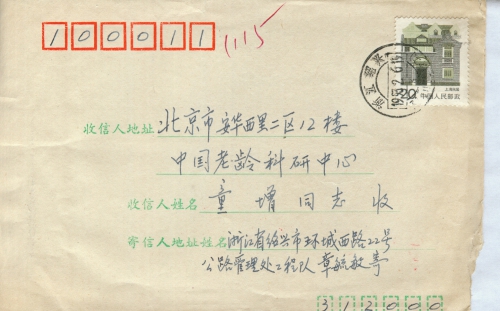 100011
1115
收信人地址 北京市安华西里二区12楼
中国老龄科研中心
收信人姓名 童增同志 收
寄信人地址姓名 浙江省绍兴市环城西路22号
公路管理处工程队 章毓敏寄
312000
浙江绍兴
20
中国人民邮政